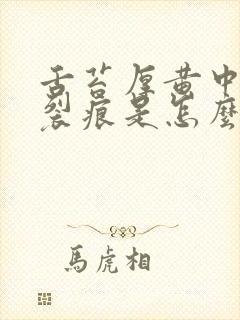 舌苔厚黄中
裂痕是怎麼
馬虎相